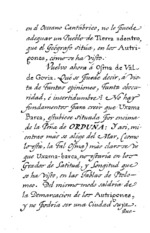 en el Oceano Cantábrico, no le puede
adequar un Pueblo de Tierra adentro,
que el Geógrafo sitúa, en los Autri-
gones, como se ha visto.
Vuelvo ahora à Osma de Val-
de Govia. Qué se puede decir, à vis-
ta de tantas opiniones, tanta obscu-
ridad, è incertidumbre? No hay
fundamento para creer que Uxama
Barca, estubiese Situada por encima
de la Peña de ORDUÑA: Y así, mi-
entras más se aleje del Mar, (como
lo está, la tal Osma) más claro se vé
que Uxama-barca, no estaría en los
Grados de Latitud, y Longitud que
se ha visto, en las Tablas de Ptolo-
meo. Del mismo modo saldría de
la Demarcacion de los Autrigones,
y no podría ser una Ciudad suya.